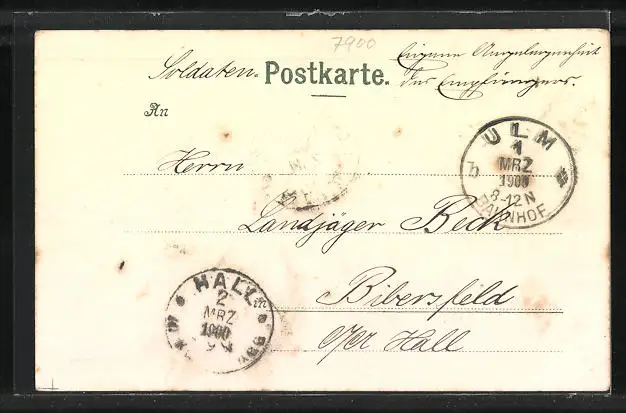 7900
Eigene Angelegenheit
Soldaten- Postkarte. des Empfängers.
An
ULM
1
MRZ
b
1900
8-12 N
BAHNHOF
Herrn
Landjäger Beck
HALL
2
MRZ
1900
in
Bibersfeld
O/A Hall